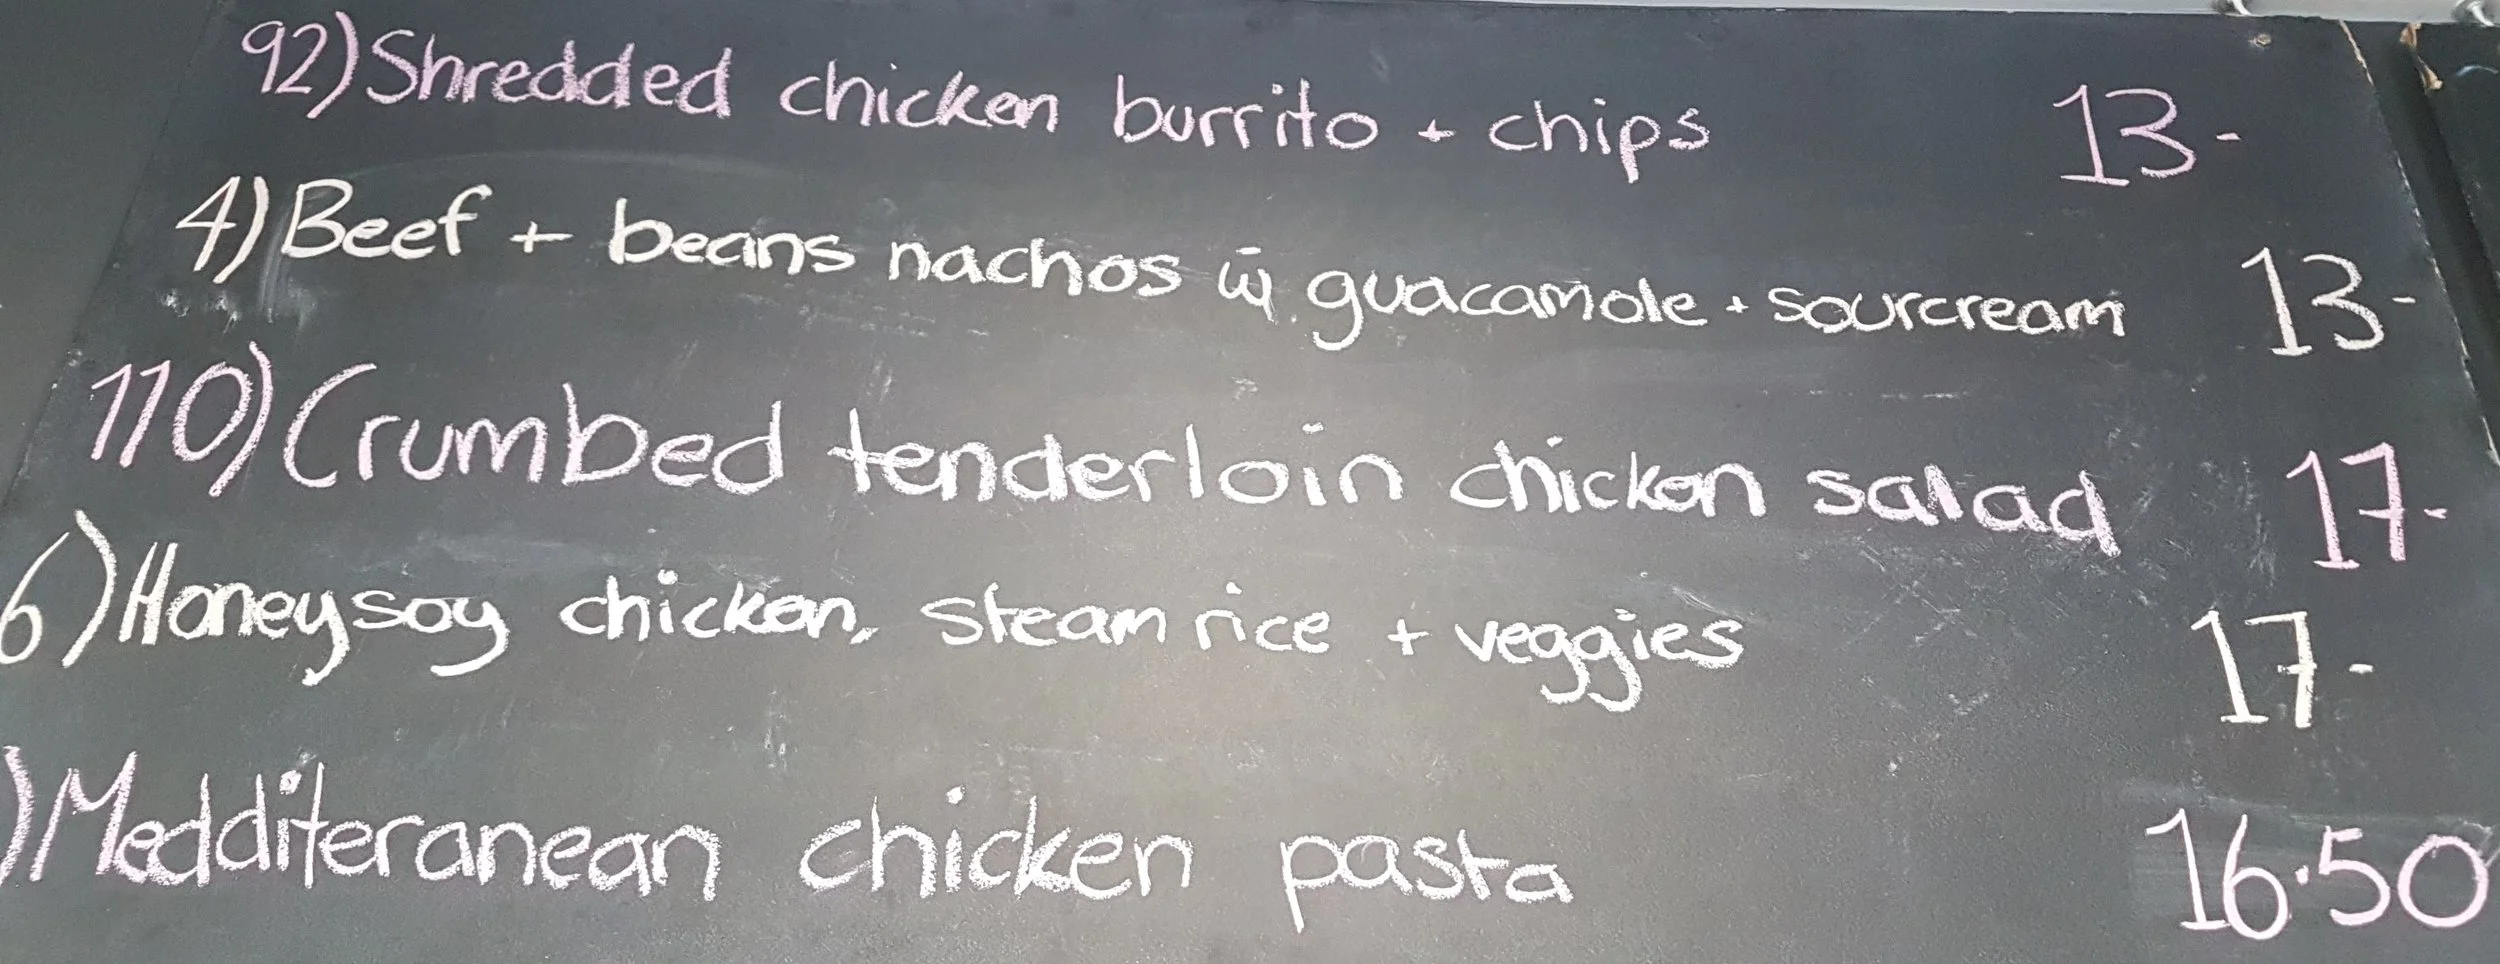 92) Shredded chicken burrito + chips 13-
4) Beef + beans nachos w guacamole + sourcream 13-
110) Crumbed tenderloin chicken salad 17-
6) Honeysoy chicken, steam rice + veggies 17-
) Medditeranean chicken pasta 16.50